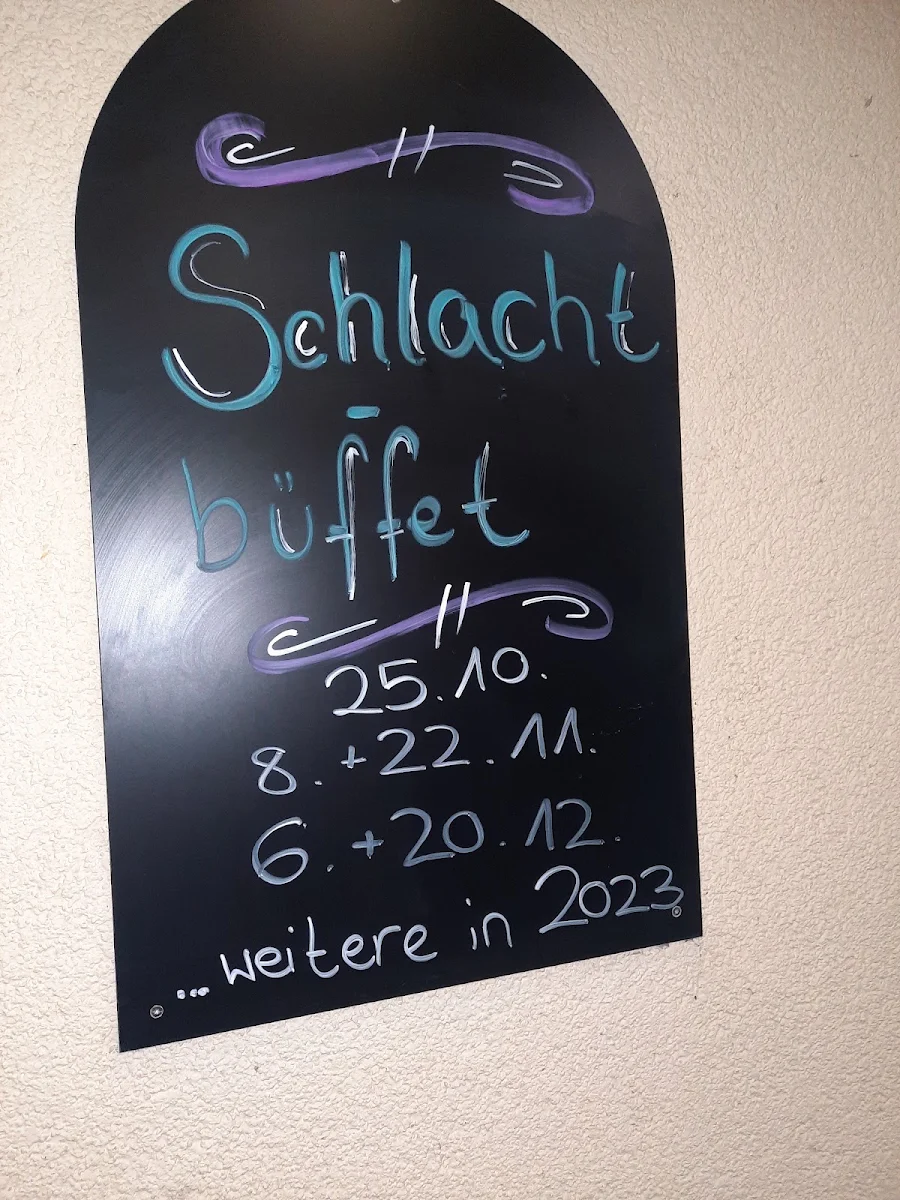 Schlacht
-
büffet
25.10.
8.+22.11.
6.+20.12.
...weitere in 2023